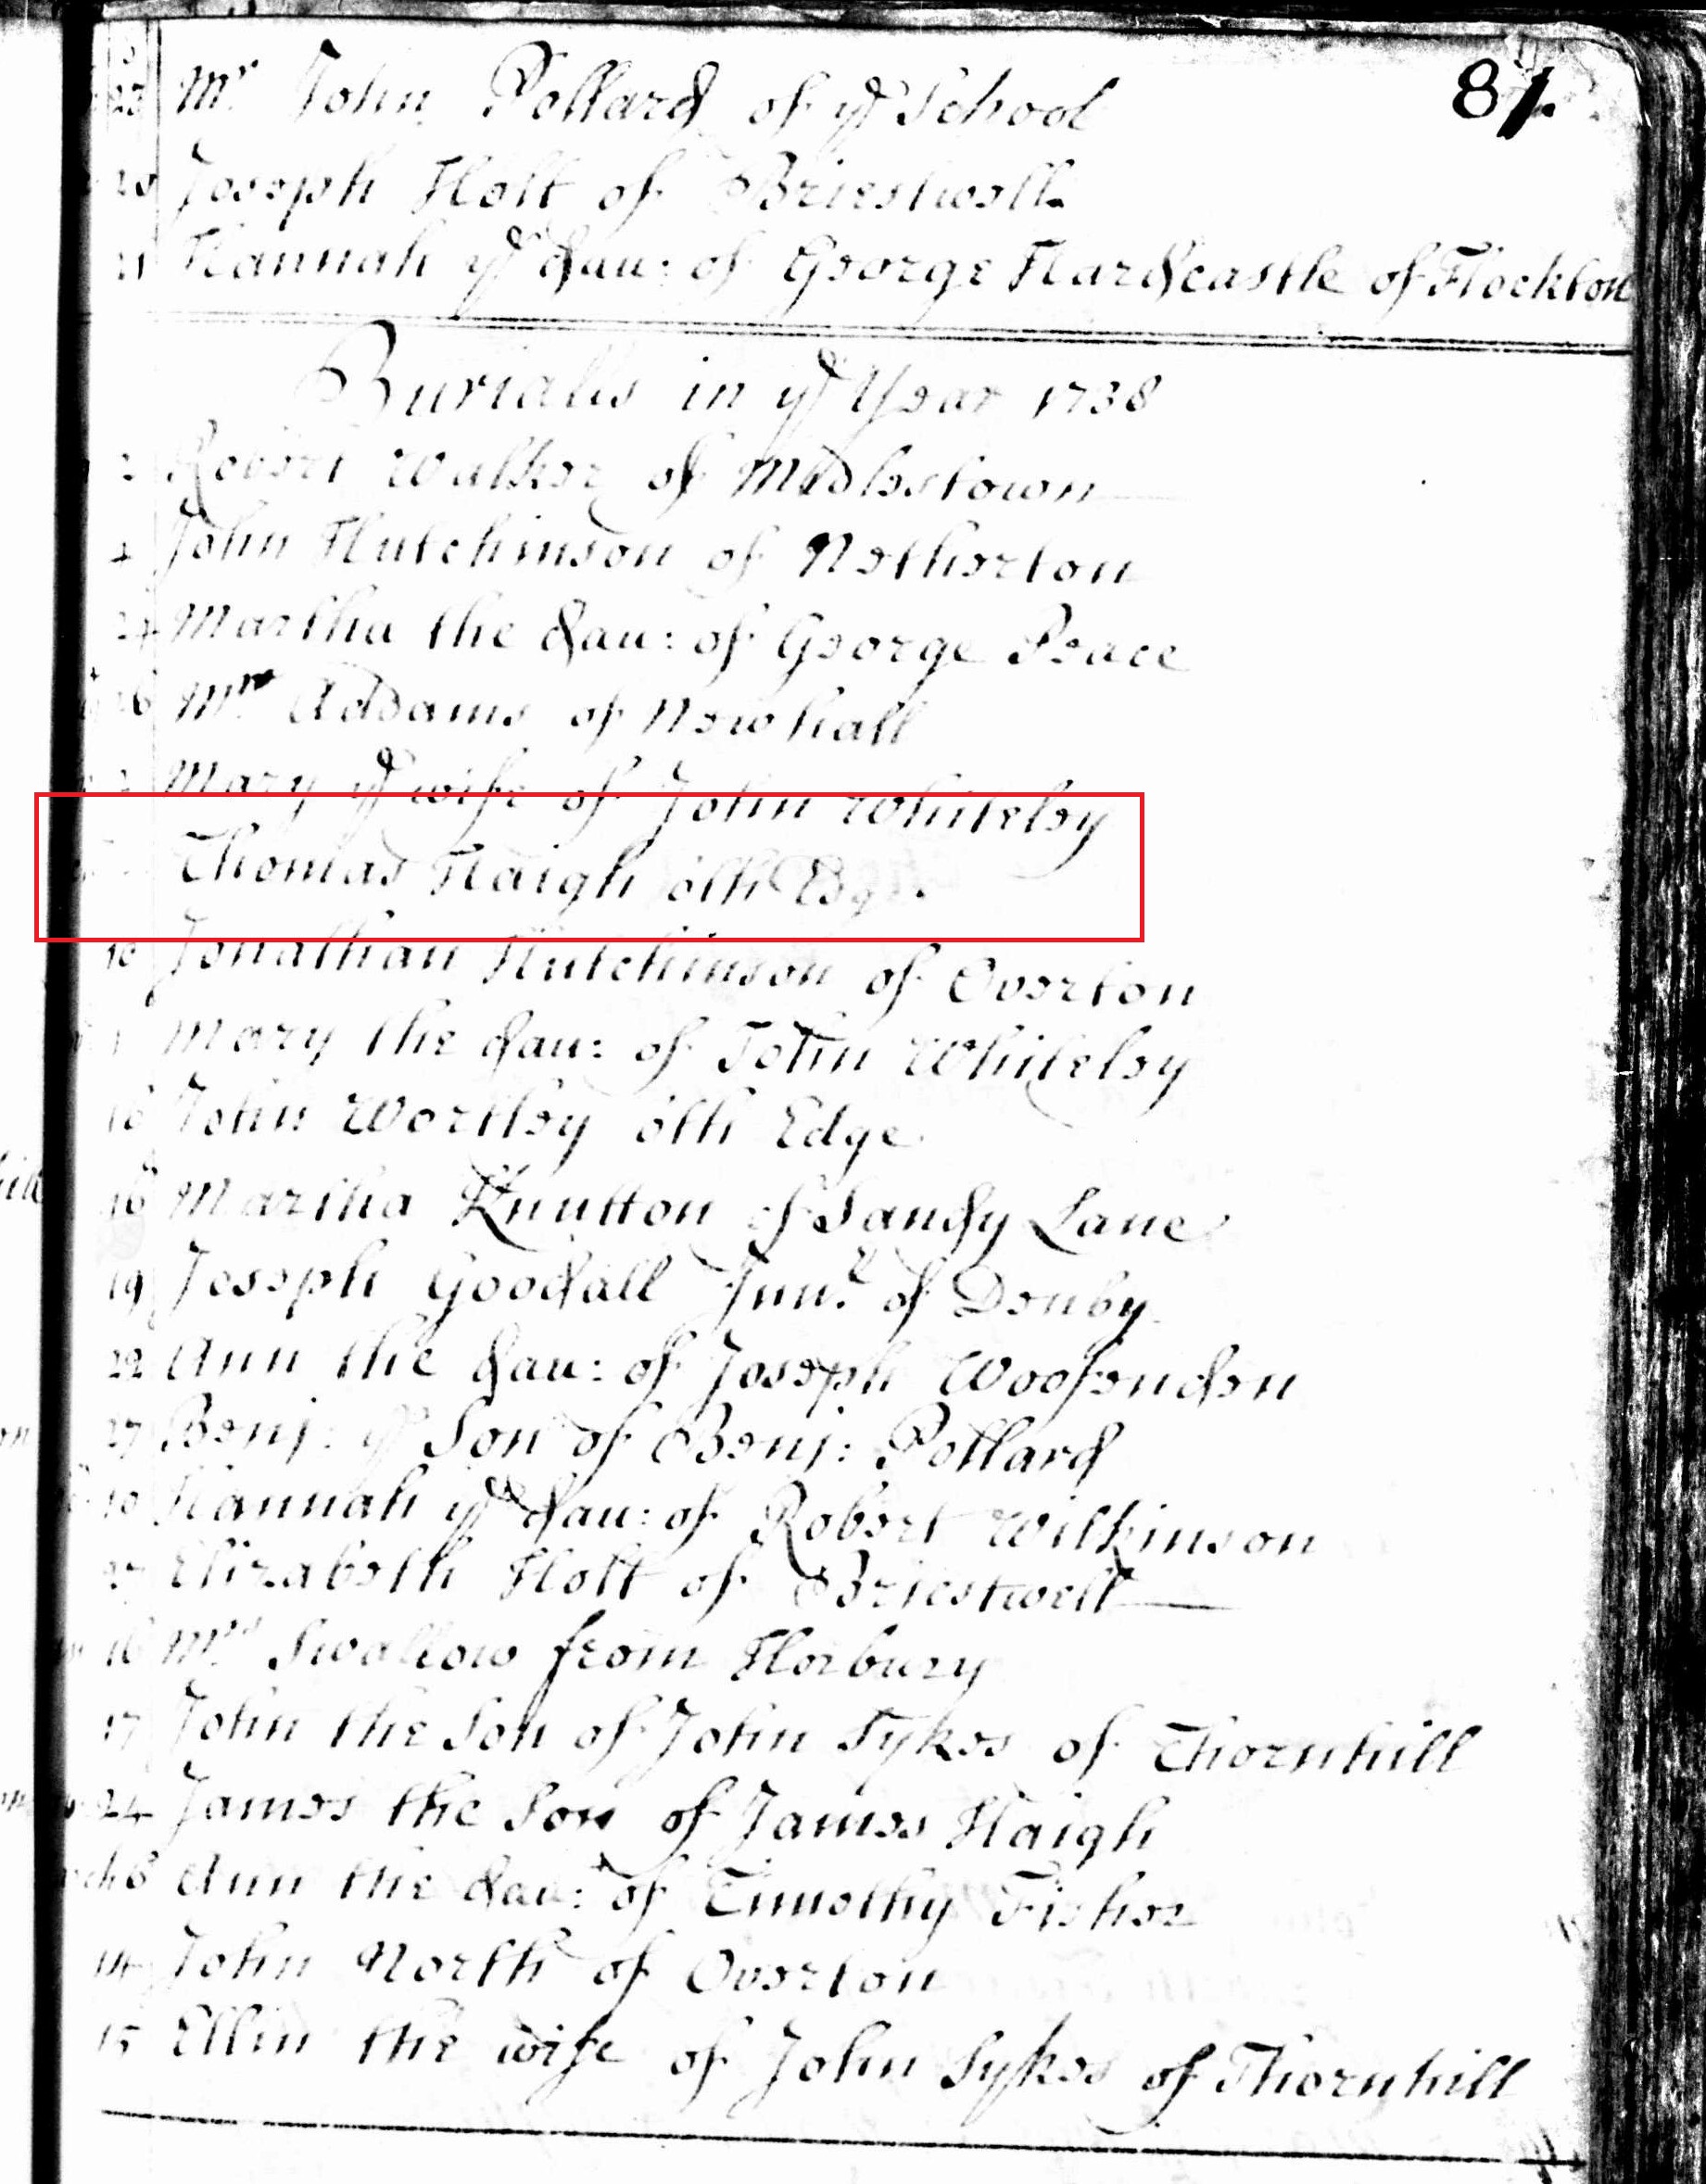 81.
23 Mr John Pollard of ye School
Joseph Holt of Briestwell
21 Hannah ye dau: of George Hardcastle of Flockton
Burialls in ye Year 1738
2 Robert Walker of Midlestown
4 John Hutchinson of Netherton
24 Martha the dau: of George Peace
26 Mrs Addams of Newhall
Mary ye wife of John Whiteley
Thomas Haigh oth Edge
10 Jonathan Hutchinson of Overton
Mary the dau: of John Whiteley
16 John Wortley oth Edge
16 Martha Knutton of Sandy Lane
19 Joseph Goodall Junr of Denby
22 Ann the dau: of Joseph Woofenden
27 Benj: ye Son of Benj: Pollard
10 Hannah ye dau: of Robert Wilkinson
27 Elizabeth Holt of Briestwell
16 Mrs Swallow from Horbury
17 John the Son of John Sykes of Thornhill
24 James the Son of James Haigh
6 Ann the dau: of Timothy Fisher
14 John North of Overton
15 Ellin the wife of John Sykes of Thornhill